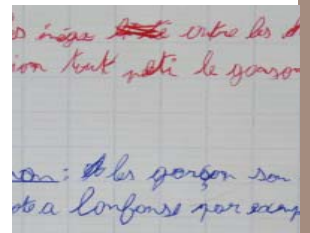 s inége entre les
ion tout peti le garson
on : les garçon son
ote a l'onfanse par exemp